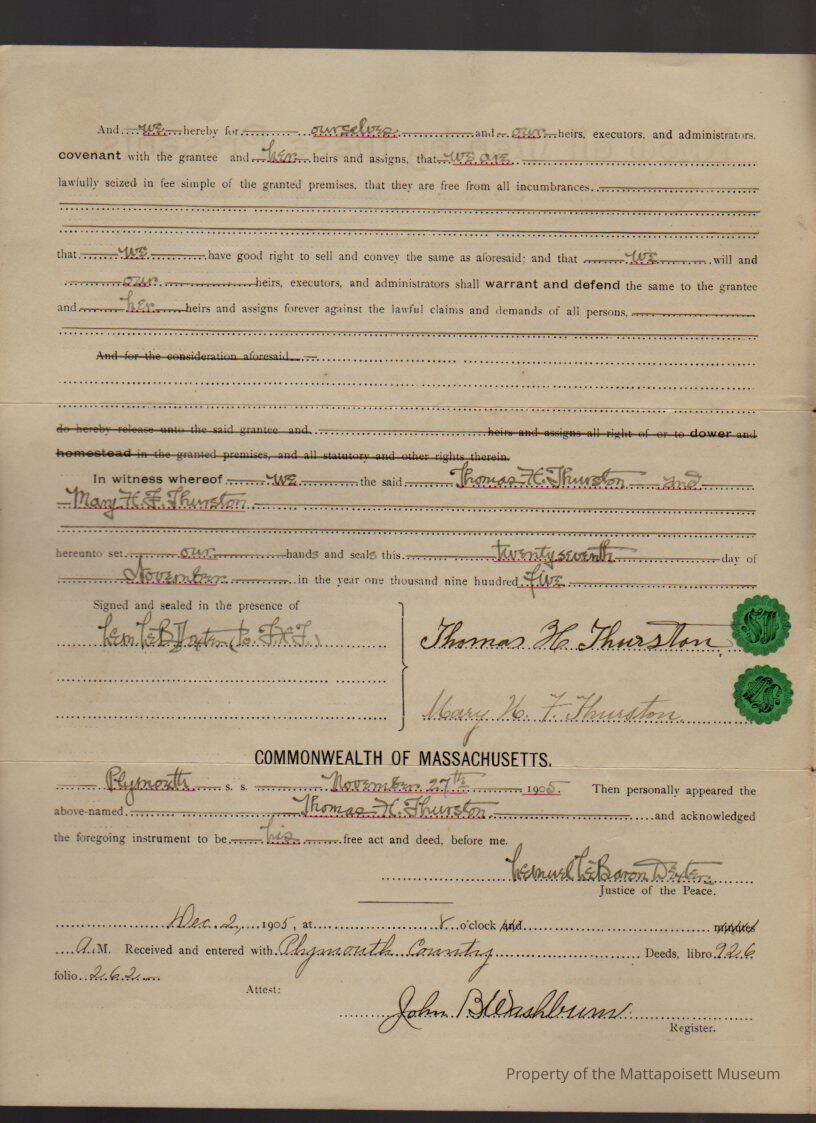 And we hereby for ourselves and our heirs, executors, and administrators,
covenant with the grantee and her heirs and assigns, that we are
lawfully seized in fee simple of the granted premises, that they are free from all incumbrances,
that we have good right to sell and convey the same as aforesaid; and that we will and
our heirs, executors, and administrators shall warrant and defend the same to the grantee
and her heirs and assigns forever against the lawful claims and demands of all persons,
And for the consideration aforesaid
do hereby release unto the said grantee and heirs and assigns all right of or to dower and
homestead in the granted premises, and all statutory and other rights therein.
In witness whereof we the said Thomas H. Thurston and
Mary H. F. Thurston
hereunto set our hands and seals this twenty seventh day of
November in the year one thousand nine hundred five
Signed and sealed in the presence of
Lem LeB Dexter (to T.H.T.)
Thomas H Thurston
Mary H. F. Thurston.
COMMONWEALTH OF MASSACHUSETTS.
Plymouth s. s. November 27th 1905. Then personally appeared the
above-named Thomas H. Thurston and acknowledged
the foregoing instrument to be his free act and deed, before me.
Lemuel LeBaron Dexter
Justice of the Peace.
Dec. 2, 1905, at 8 o'clock and minutes
A.M. Received and entered with Plymouth County Deeds, libro 926
folio 262
Attest:
John B Washburn
Register.
Property of the Mattapoisett Museum